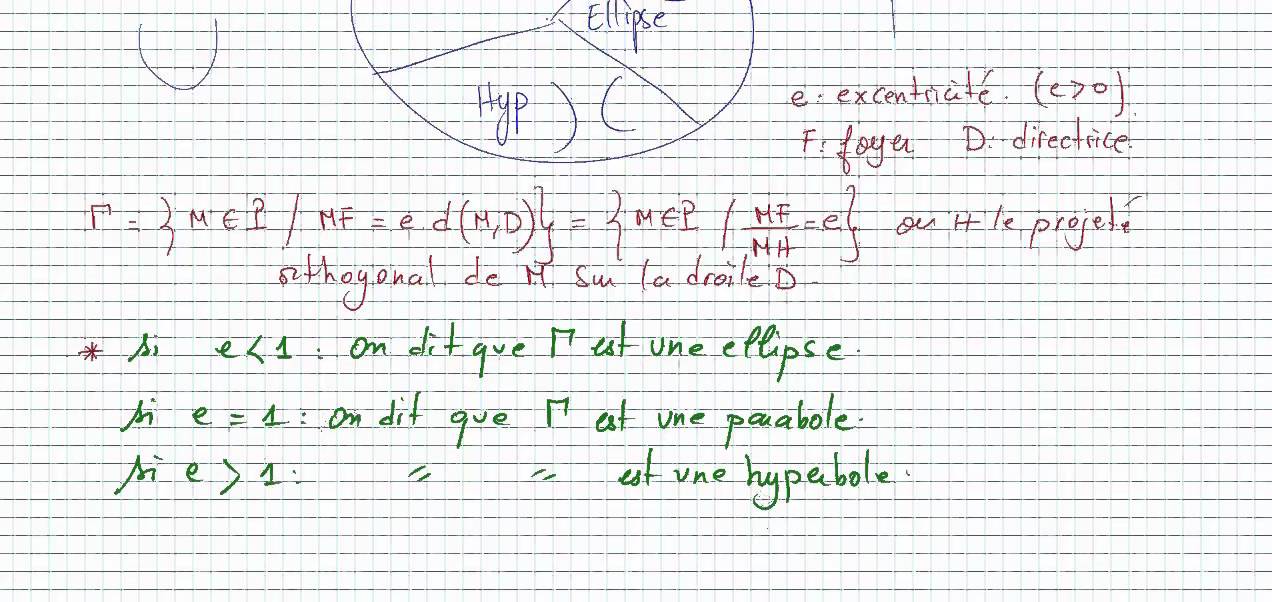 Ellipse
Hyp
e: excentricité. (e>0)
F: foyer D: directrice.
Γ = { M ∈ P / MF = e.d(M,D)} = { M ∈ P / MF/MH = e} ou H le projeté
orthogonal de M sur la droite D.
* si e < 1 : on dit que Γ est une ellipse.
si e = 1 : on dit que Γ est une parabole.
si e > 1 : " " est une hyperbole.